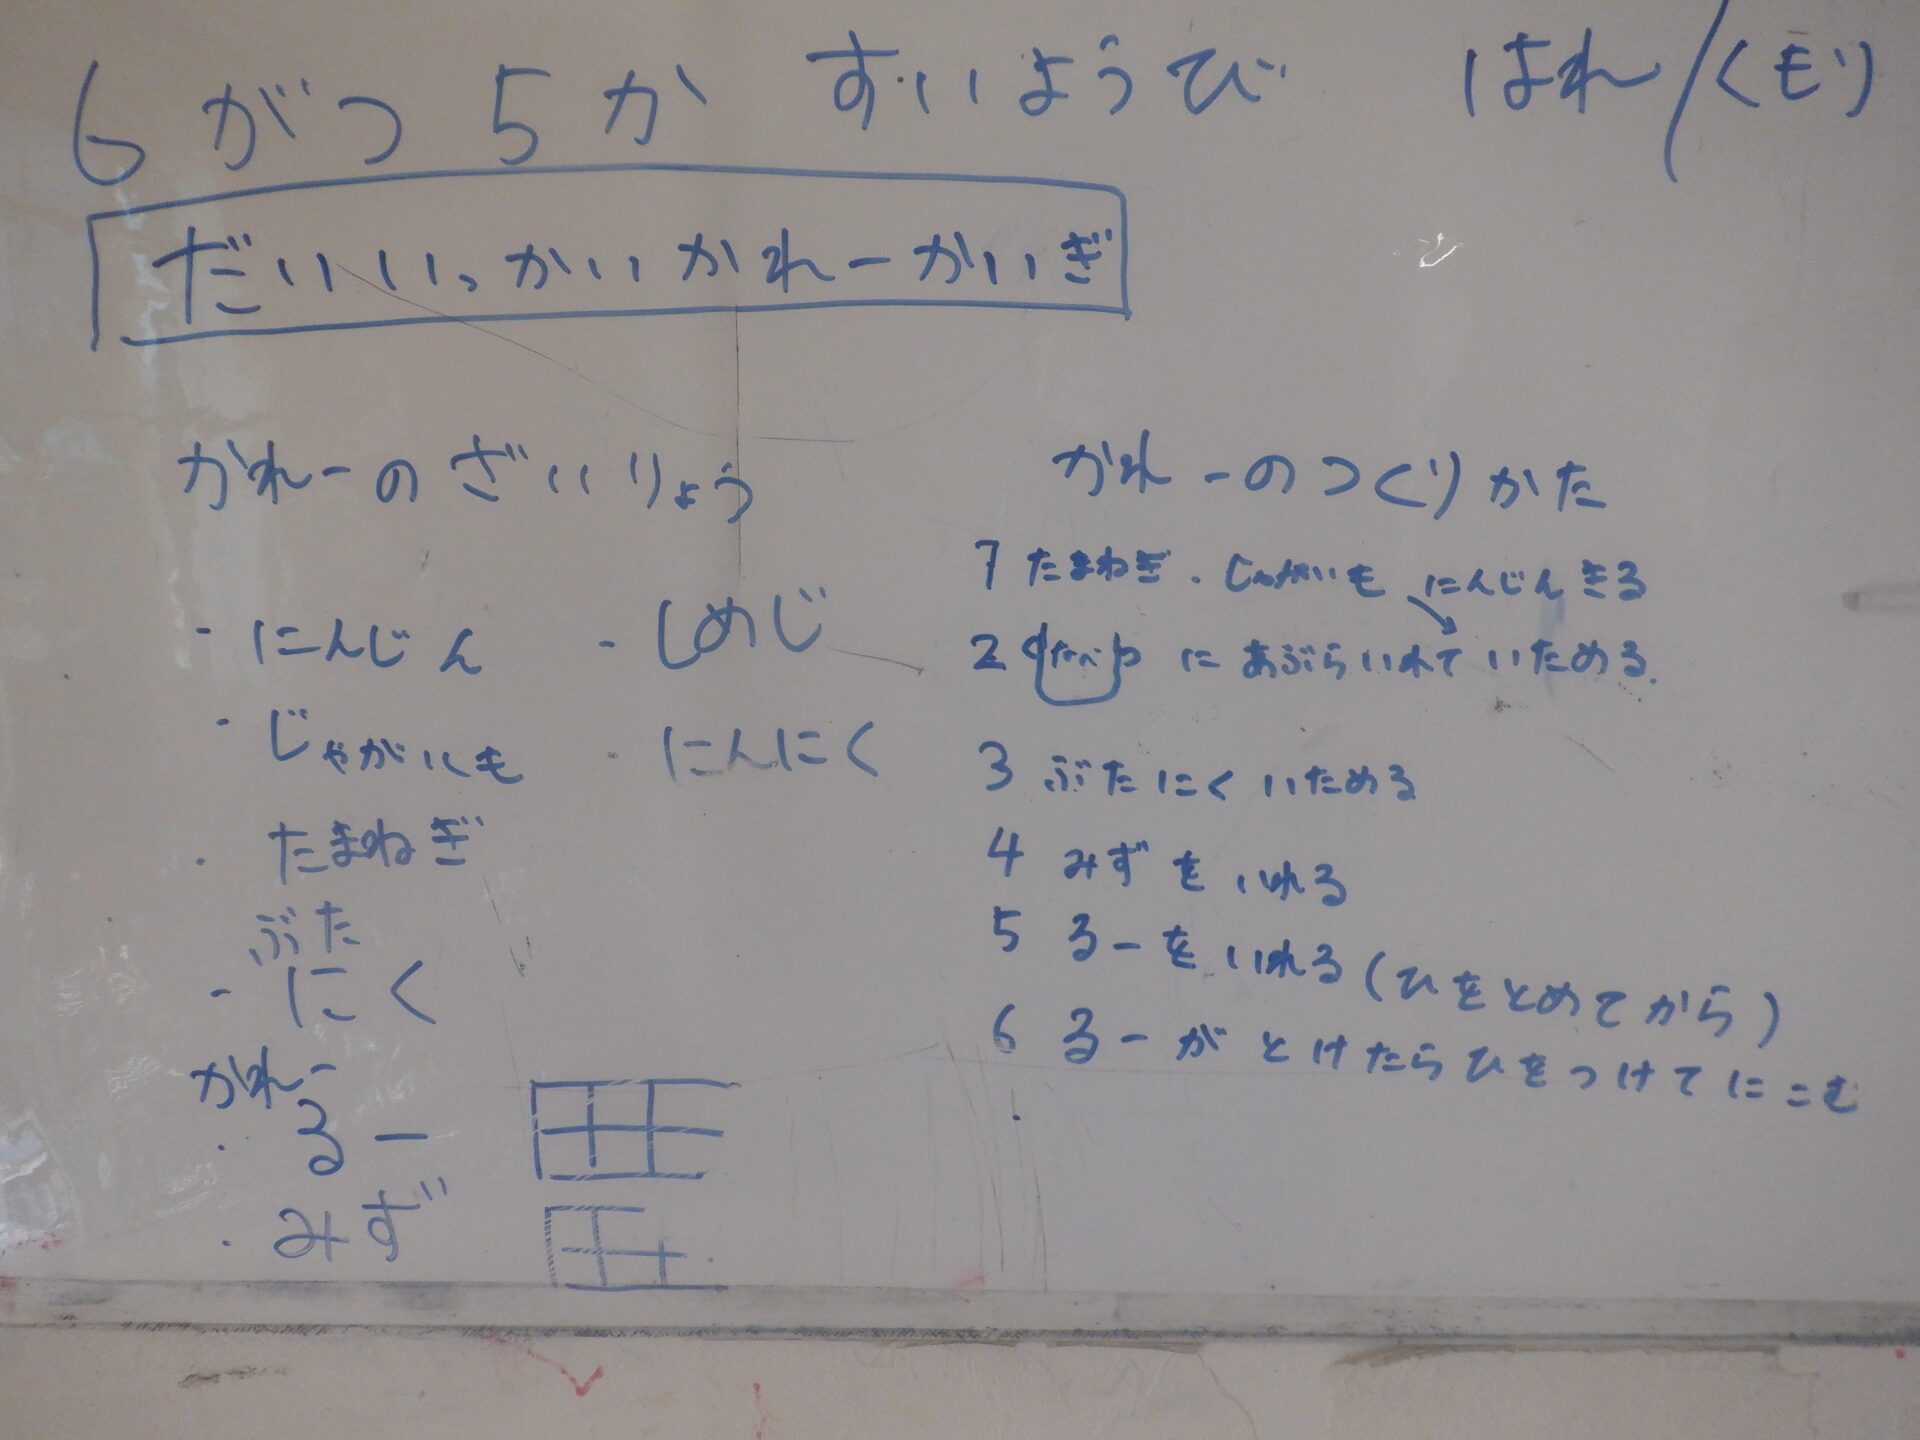 6がつ5か すいようび はれ/くもり
だいいっかいかれーかいぎ
かれーのざいりょう
・にんじん
・じゃがいも
・たまねぎ
・ぶたにく
・かれーるー
・みず
・しめじ
・にんにく
かれーのつくりかた
1 たまねぎ・じゃがいも にんじんきる
2 なべ にあぶらいれていためる
3 ぶたにくいためる
4 みずをいれる
5 るーをいれる(ひをとめてから)
6 るーがとけたらひをつけてにこむ